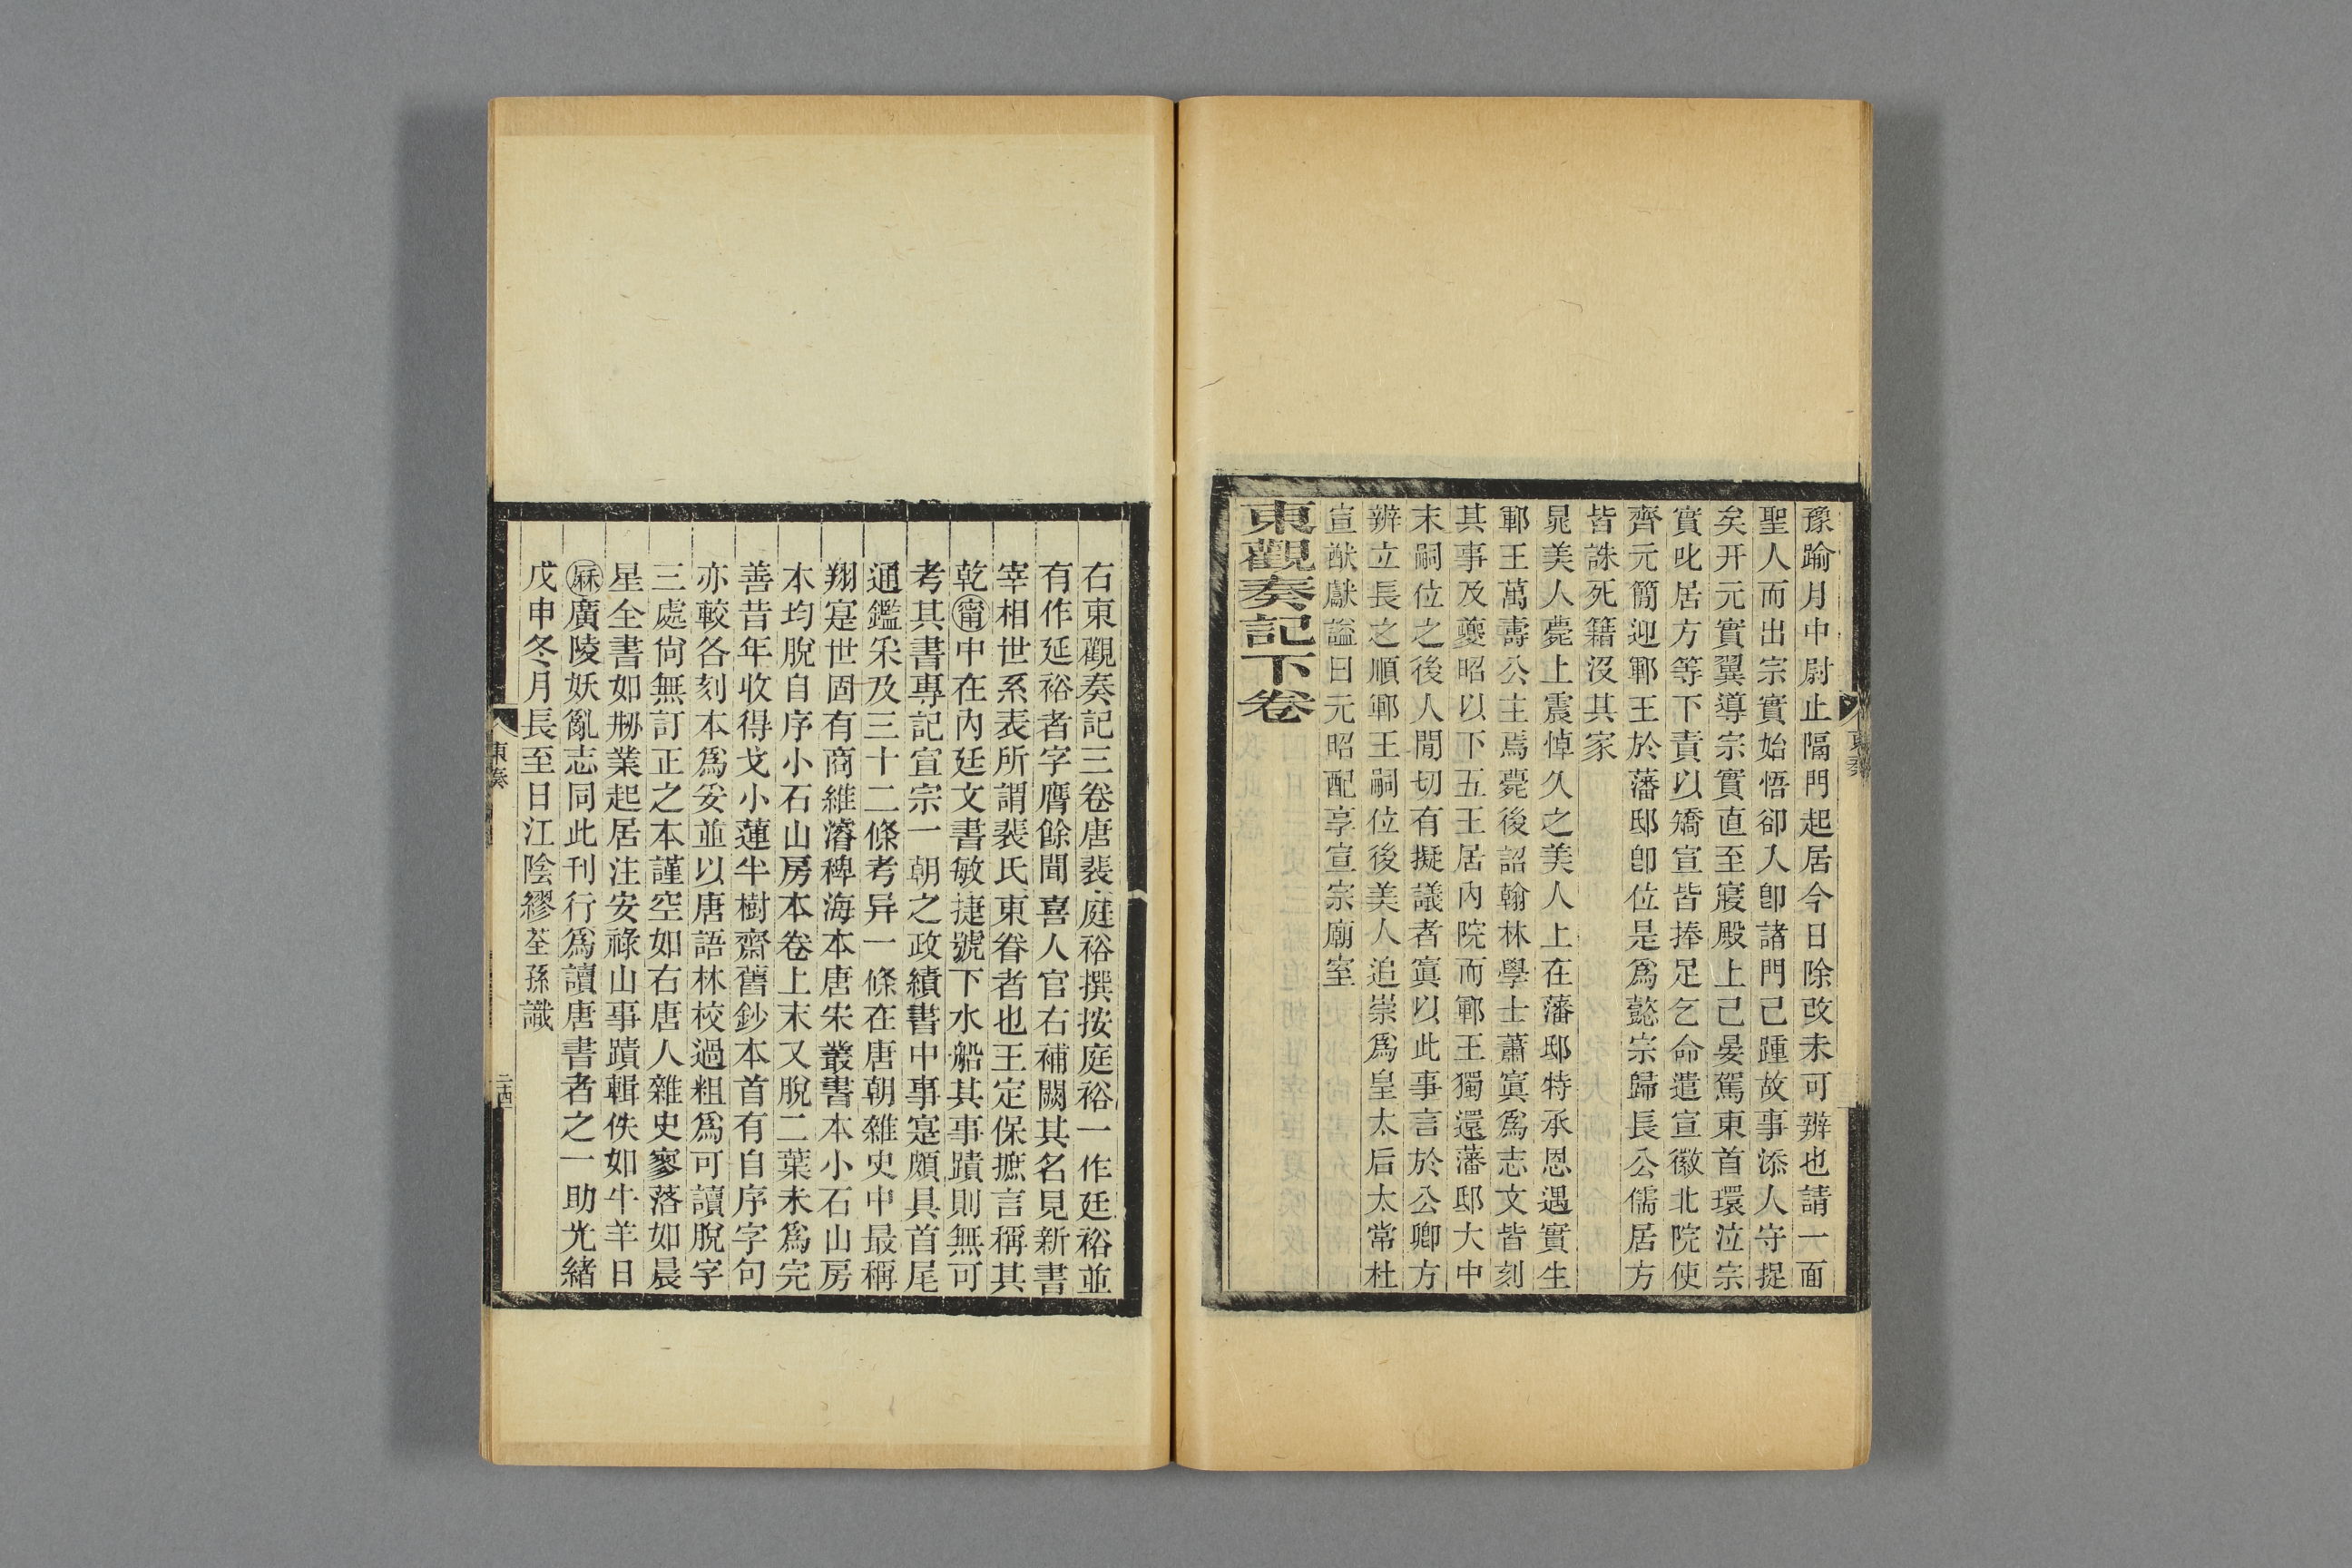 豫踰月中尉止隔門起居今日除改未可辨也請一面
聖人而出宗實始悟卻入卽諸門已踵故事添人守捉
矣开元實翼導宗實直至寢殿上已晏駕東首環泣宗
實叱居方等下責以矯宣皆捧足乞命遣宣徽北院使
齊元簡迎鄆王於藩邸卽位是爲懿宗歸長公儒居方
皆誅死籍沒其家
晁美人薨上震悼久之美人上在藩邸特承恩遇實生
鄆王萬壽公主焉薨後詔翰林學士蕭寘爲志文皆刻
其事及夔昭以下五王居內院而鄆王獨還藩邸大中
末嗣位之後人閒切有擬議者寘以此事言於公卿方
辨立長之順鄆王嗣位後美人追崇爲皇太后太常杜
宣猷獻謚曰元昭配享宣宗廟室
東觀奏記下卷
東奏
右東觀奏記三卷唐裴庭裕撰按庭裕一作廷裕並
有作延裕者字膺餘聞喜人官右補闕其名見新書
宰相世系表所謂裴氏東眷者也王定保摭言稱其
乾甯中在內廷文書敏捷號下水船其事蹟則無可
考其書專記宣宗一朝之政績書中事寔頗具首尾
通鑑采及三十二條考异一條在唐朝雜史中最稱
翔寔世固有商維濬稗海本唐宋叢書本小石山房
本均脫自序小石山房本卷上末又脫二葉未爲完
善昔年收得戈小蓮半樹齋舊鈔本首有自序字句
亦較各刻本爲妥並以唐語林校過粗爲可讀脫字
三處尙無訂正之本謹空如右唐人雜史寥落如晨
星全書如剏業起居注安祿山事蹟輯佚如牛羊日
厤廣陵妖亂志同此刊行爲讀唐書者之一助光緒
戊申冬月長至日江陰繆荃孫識
東奏
二四